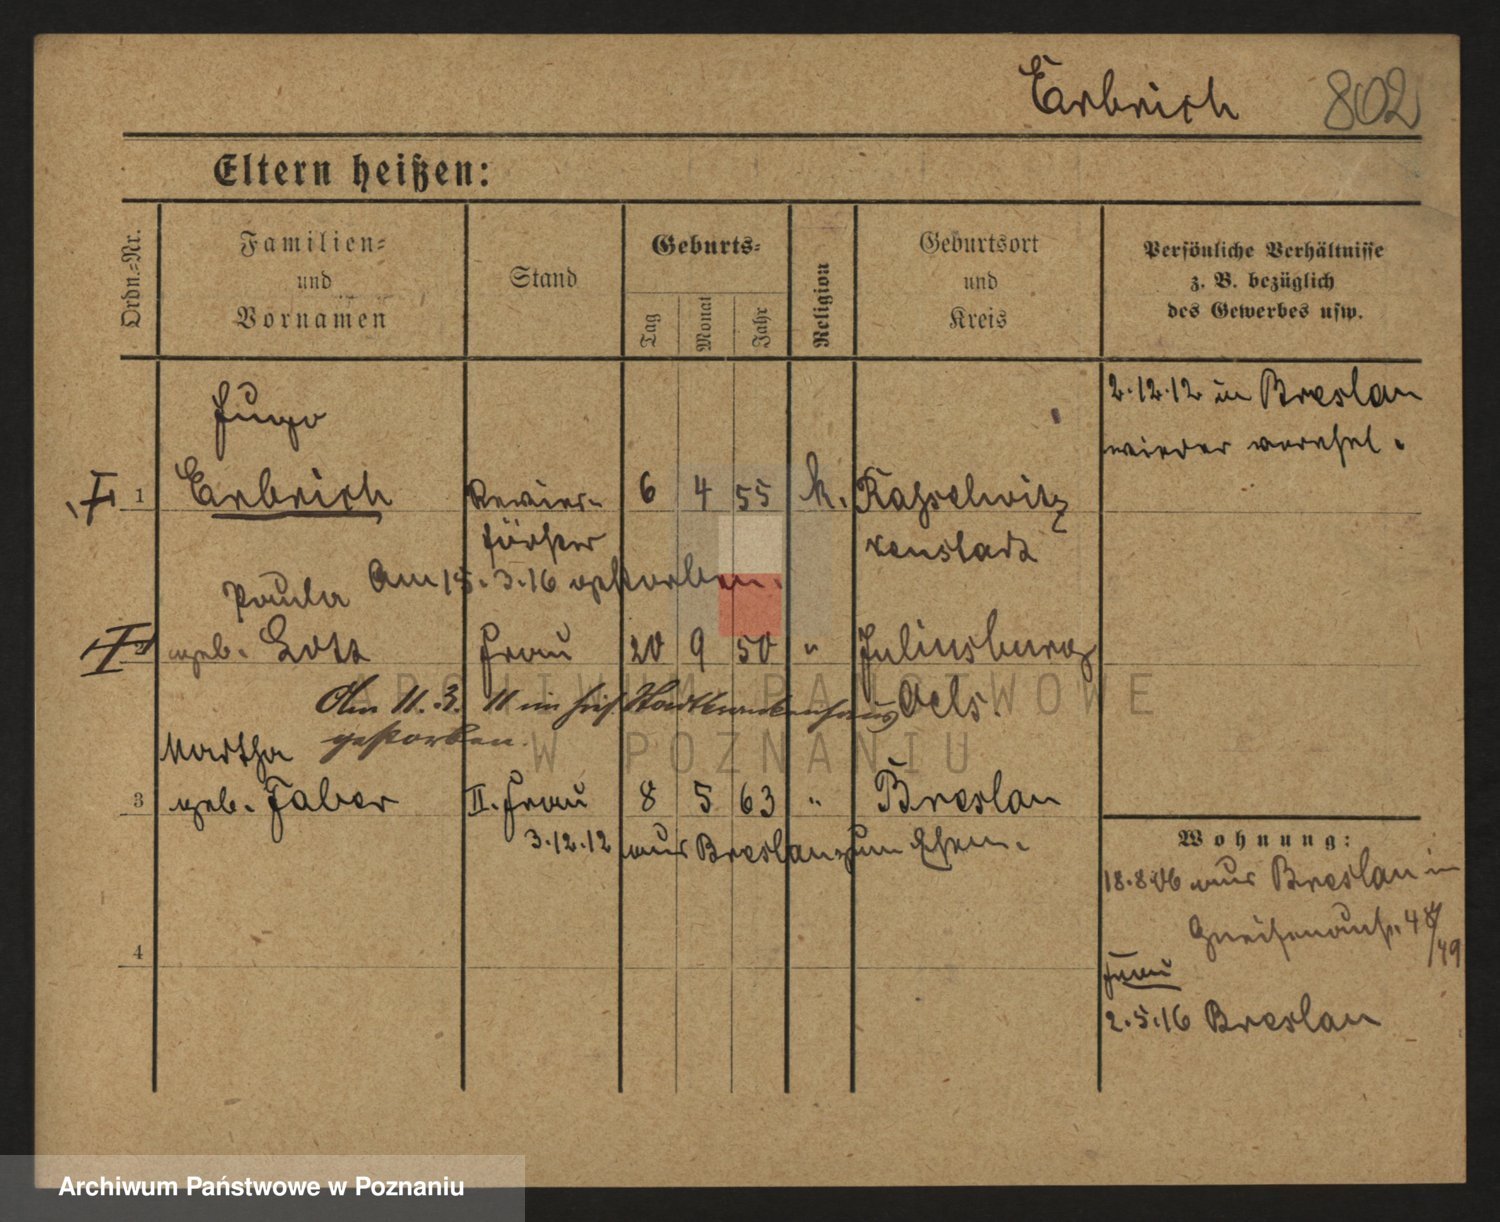 Erbrich 802
Eltern heißen:
Ordn.-Nr.
Familien-
und
Vornamen
Stand
Geburts-
Tag
Monat
Jahr
Religion
Geburtsort
und
Kreis
Persönliche Verhältnisse
z. B. bezüglich
des Gewerbes usw.
2.12.12 in Breslau
wieder verehel.
Hugo
1 Erbrich Revier- 6 4 55 k. Kasselwitz
förster Neustadt
Am 15.3.16 gestorben.
Paula
geb. Lott Frau 20 9 50 " Juliusburg
Am 11.3. 11 im hies. Stadtkrankenhaus Oels.
gestorben.
Martha
3 geb. Faber II. Frau 8 5 63 " Breslau
3.12.12 aus Breslau zum Ehem.
Wohnung:
18.8.06 aus Breslau in
Gneisenaustr. 48/49
4
Frau
2.5.16 Breslau
ARCHIWUM PAŃSTWOWE
W POZNANIU
Archiwum Państwowe w Poznaniu